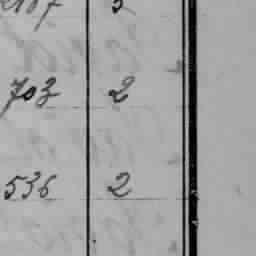 703 2
536 2